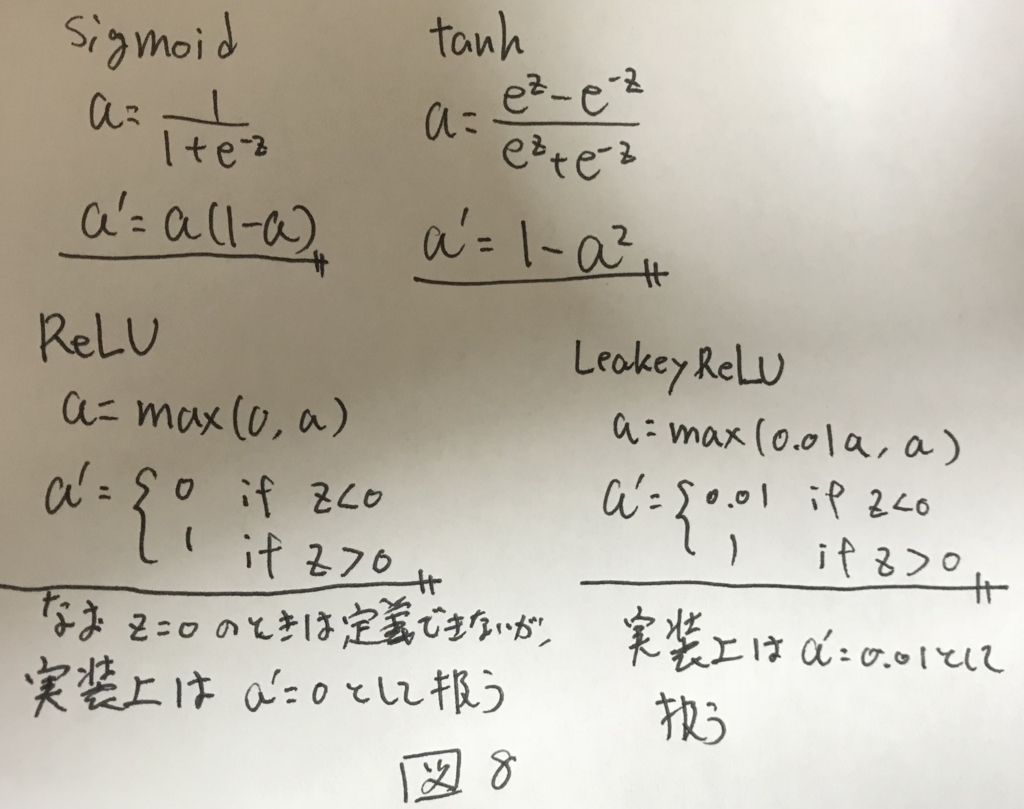 sigmoid
a = 1/(1+e^-z)
a' = a(1-a)
tanh
a = (e^z - e^-z)/(e^z + e^-z)
a' = 1 - a^2
ReLU
a = max(0, a)
a' = { 0 if z<0
1 if z>0
なお z=0 のときは定義できないが、
実装上は a'=0 として扱う
LeakeyReLU
a = max(0.01a, a)
a' = { 0.01 if z<0
1 if z>0
実装上は a'=0.01として
扱う
図 8